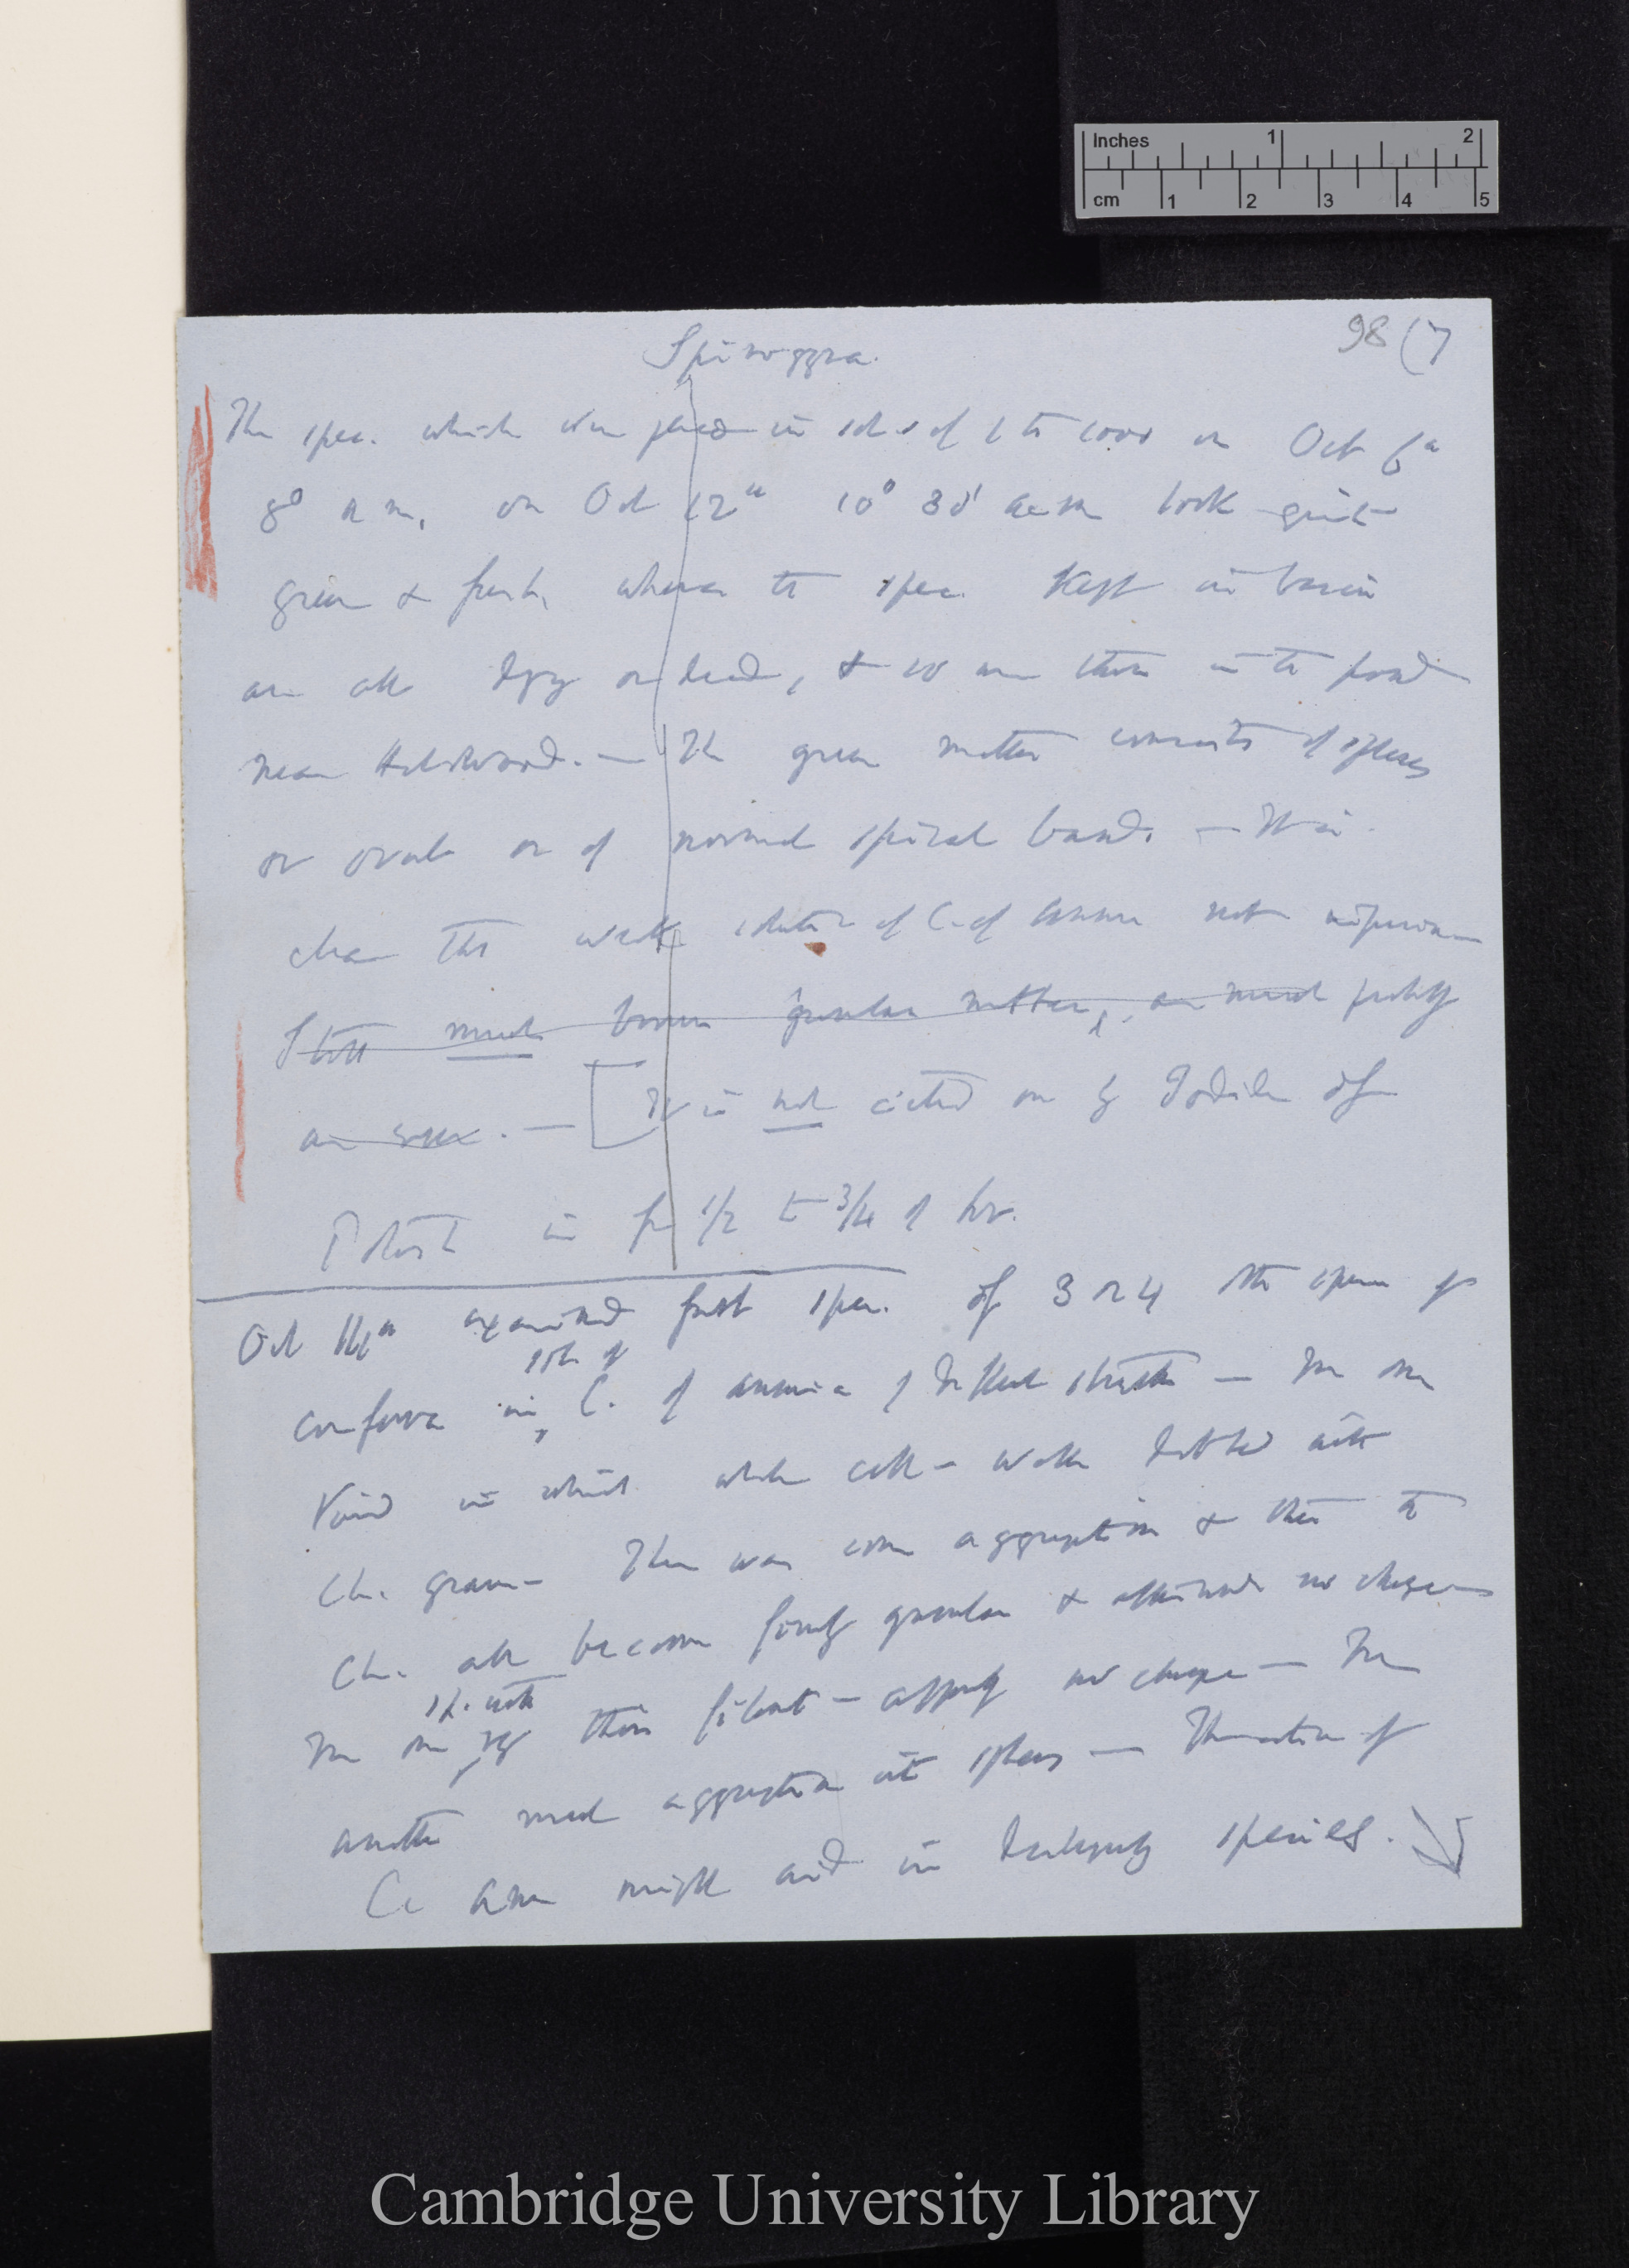 Inches 1 2
cm 1 2 3 4 5
98 (7
Spirogyra.
The spec. which were placed in sol. of 1 to 1000 on Oct 6th
8° a m, on Oct 12th 10° 30' a.m look quite
green & fresh, whereas the spec. kept in basin
are all dying or dead, & so are those in the pond
near Holwood. — The green matter consists of spheres
or ovals or of normal spiral bands — It is
clear the weak solution of C. of Ammonia not injurious
I still much brown granular matter, or much
are seen. — [It is not acted on by Iodide of
Potash in from 1/2 to 3/4 of hr.
Oct 14th examined fresh spec. of 3 or 4 other species of
sol. of
conferva in C. of ammonia of different strengths — In one
kind in which whole cell-walls dotted with
Ch. grains — There was some aggregation & then the
Ch. all become finely granular & afterwards no change
sp. with
In one thin filament — apparently no change — In
another much aggregation into spheres — The action of
C. Amm might aid in distinguishing species.
Cambridge University Library